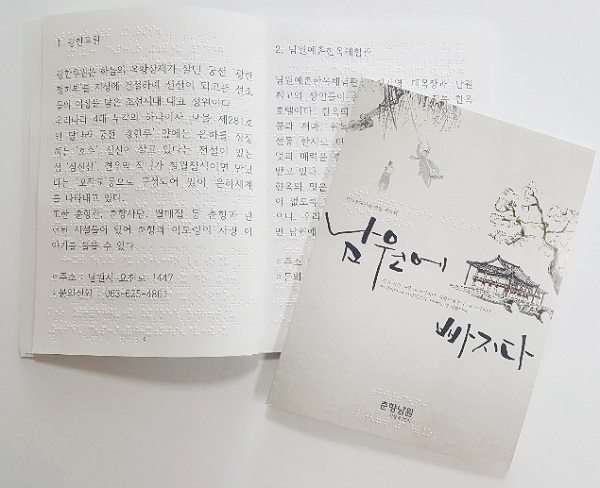 1. 광한루원
광한루원은 하늘의 옥황상제가 살던 궁전 '광한
청허부'를 지상에 건설하여 신선이 되고픈 선조
들의 이상을 담은 조선시대 대표 정원이다.
우리나라 4대 누각의 하나이자 보물 제281호
인 달나라 궁전 '광한루' 앞에는 은하를 상징
하는 '호수' 신선이 살고 있다는 전설이 있는
섬 '삼신산' 견우와 직녀가 칠월칠석이면 만났
다는 '오작교' 등으로 구성되어 있어 은하세계
를 나타내고 있다.
또한 춘향관, 춘향사당, 월매집 등 춘향과 관
련된 시설들이 있어 춘향과 이도령의 사랑 이
야기를 들을 수 있다.
○주소 : 남원시 요천로 1447
○문의전화 : 063-625-4861
2. 남원예촌한옥체험관
남원예촌한옥체험관은 대목장과 남원
최고의 장인들이 한옥
호텔이다. 한옥의
전통 방식으로
멋과 매력을
받고 있다
한옥의 멋은
이 없도록
아니, 우리
면 남원예
○주소
○문의
남원에
빠지다
춘향남원